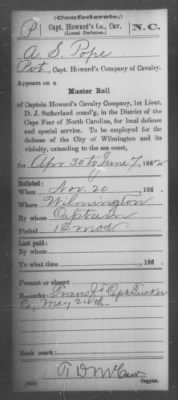 (Confederate.)
P Capt. Howard's Co., Cav. N. C.
(Local Defense.)
A. S. Pope
Pvt, Capt. Howard's Company of Cavalry.
Appears on a
Muster Roll
of Captain Howard's Cavalry Company, 1st Lieut.
D. J. Sutherland comd'g, in the District of the
Cape Fear of North Carolina, for local defense
and special service. To be employed for the
defense of the City of Wilmington and its
vicinity, extending to the sea coast,
for Apr 30 to June 7, 1862
Enlisted:
When Nov. 20, 186 .
Where Wilmington
By whom Captain
Period 12 mos
Last paid:
By whom
To what time , 186 .
Present or absent
Remarks: Transf'd Capt Tucker
Co, May 24th
Book mark:
Copyist.